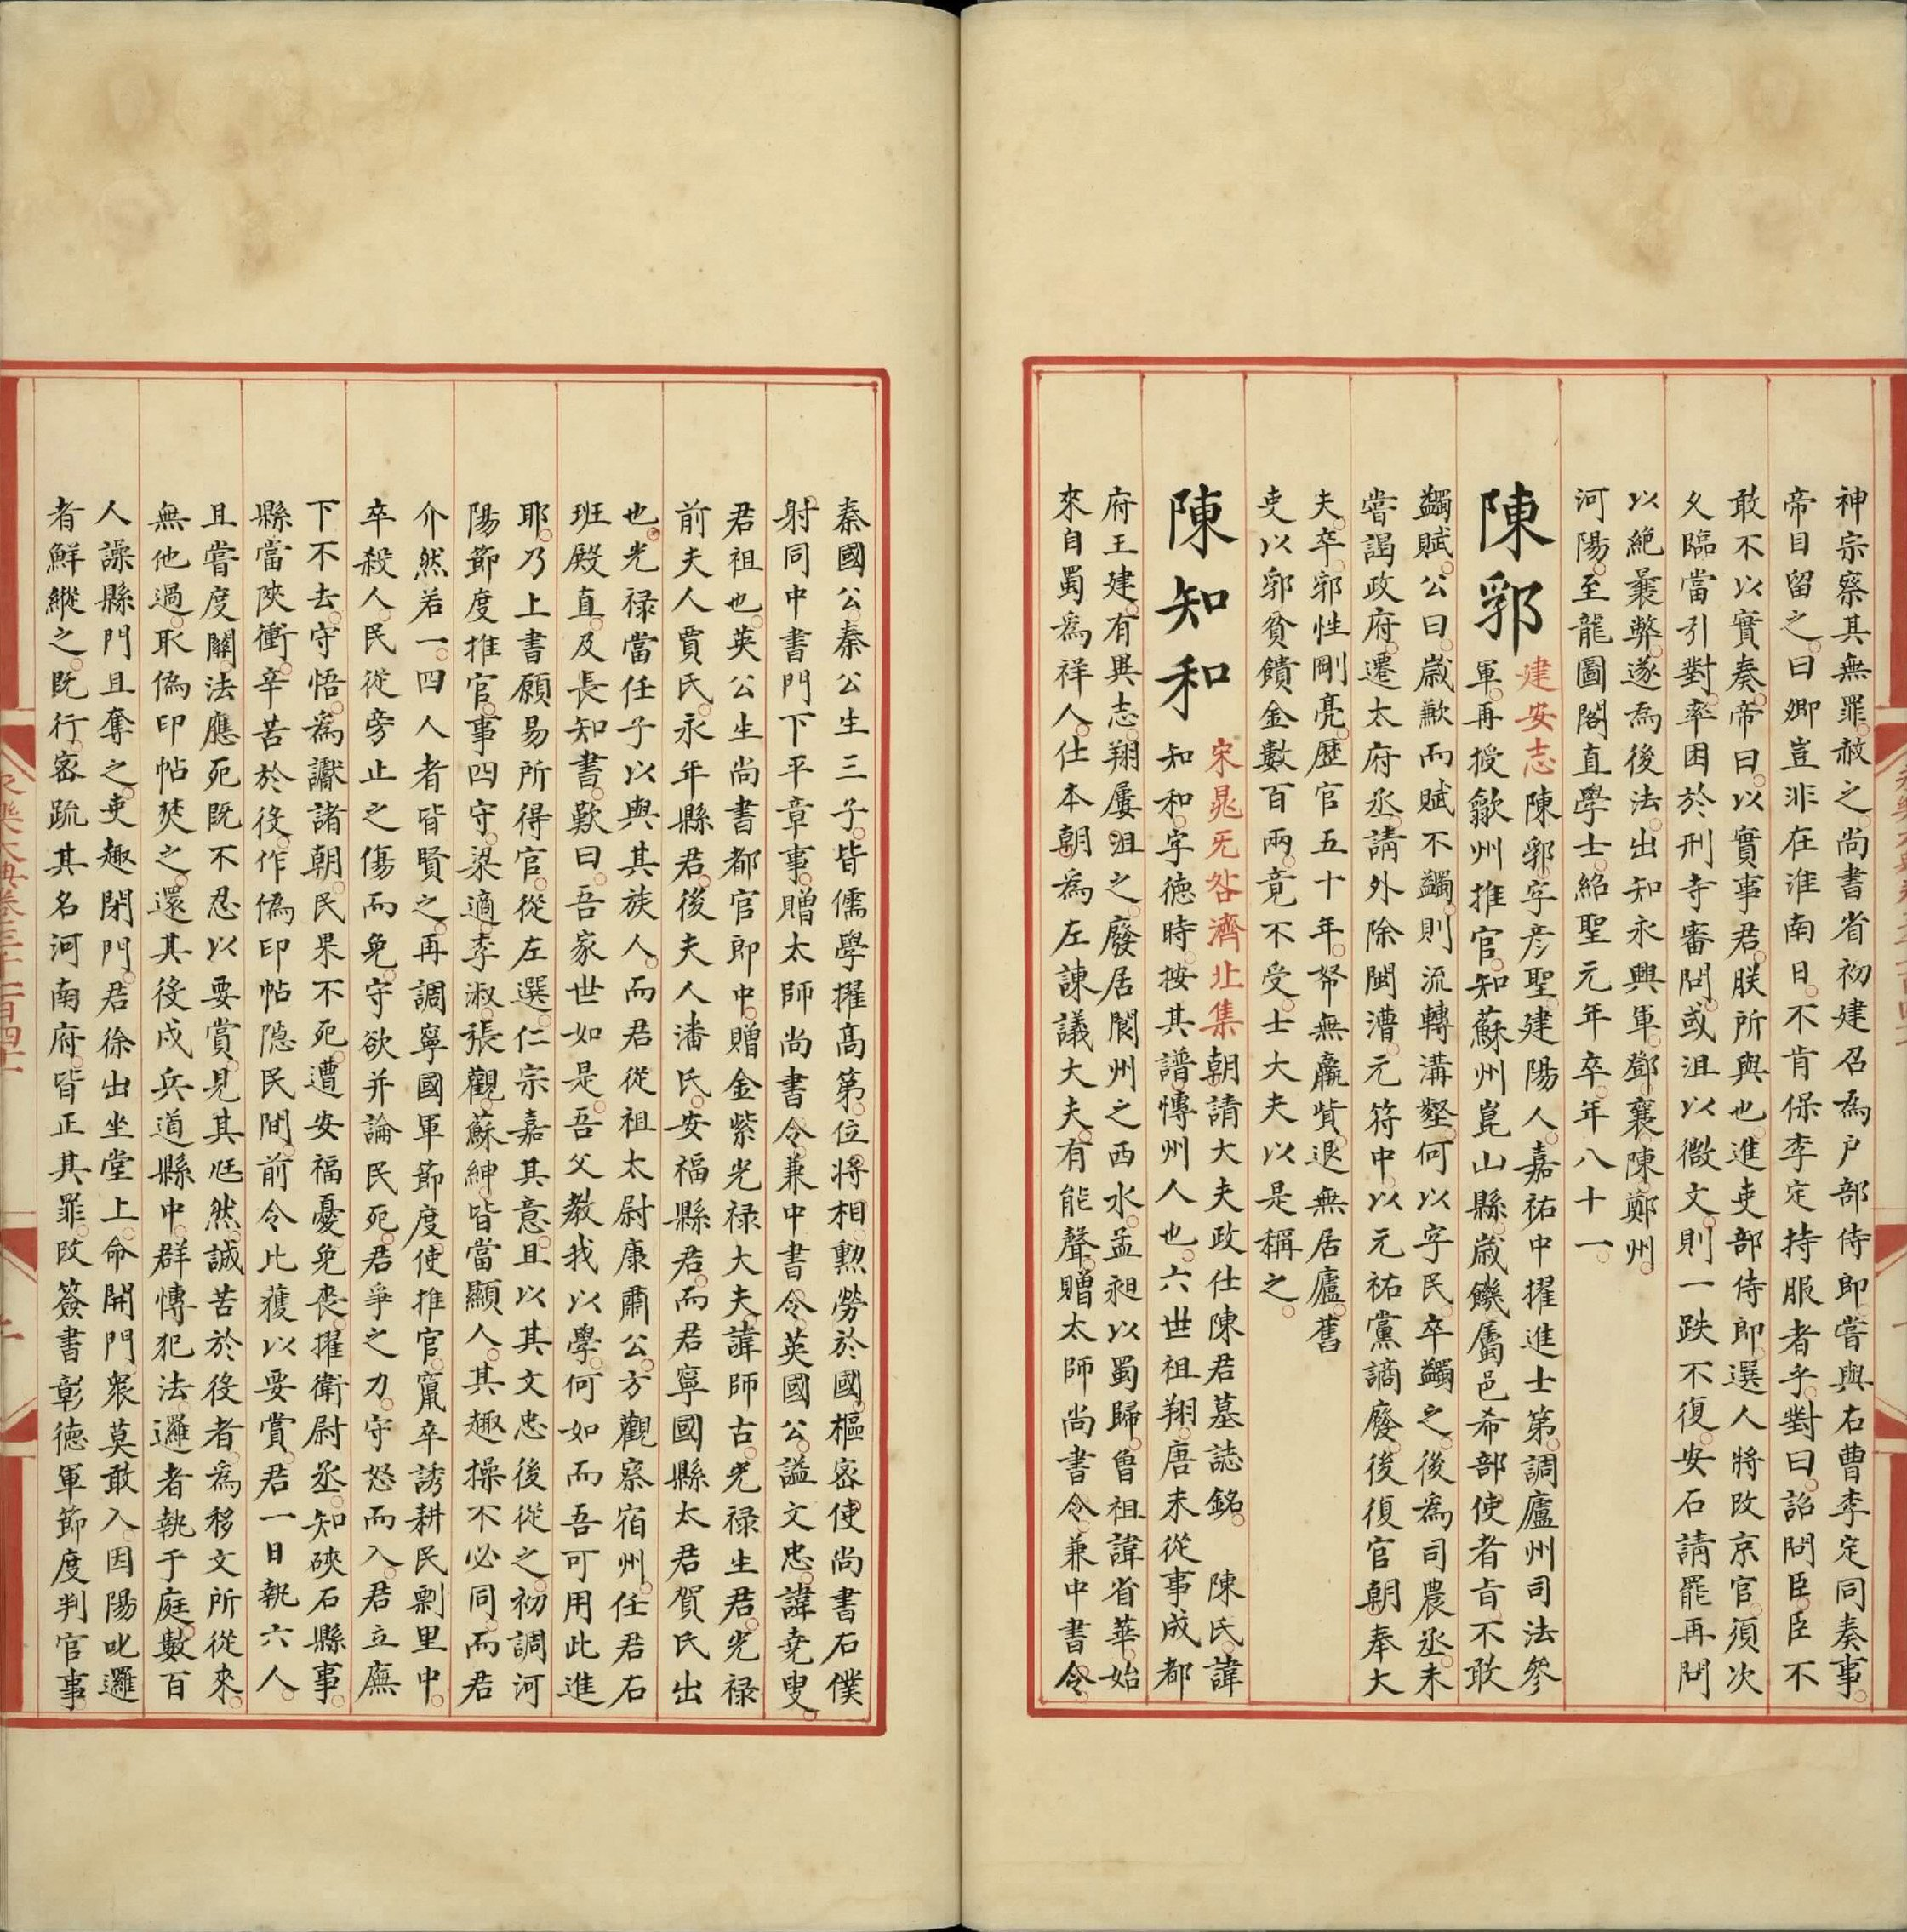 神宗察其無罪赦之尚書省初建召為户部侍郎嘗與右曹李定同奏事
帝目留之曰卿豈非在淮南日不肯保李定持服者乎對曰詔問臣臣不
敢不以實奏帝曰以實事君朕所與也進吏部侍郎選人將改京官須次
乆臨當引對率困於刑寺審問或沮以微文則一跌不復安石請罷再問
以絶羕弊遂為後法出知永興軍鄧襄陳鄭州
河陽至龍圖閣直學士紹聖元年卒年八十一
陳郛
建安志陳郛字彦聖建陽人嘉祐中擢進士第調廬州司法參
軍再授歙州推官知蘇州崑山縣歲饑屬邑希部使者㫖不敢
蠲賦公曰歲歉而賦不蠲則流轉溝壑何以字民卒蠲之後為司農丞未
嘗謁政府遷太府丞請外除閩漕元符中以元祐黨謫廢後復官朝奉大
夫卒郛性剛亮歷官五十年帑無羸貲退無居廬舊
吏以郛貧饋金數百兩竟不受士大夫以是稱之
陳知和
宋晁旡咎濟北集朝請大夫政仕陳君墓誌銘 陳氏諱
知和字德時按其譜愽州人也六世祖翔唐末從事成都
府王建有異志翔屢沮之廢居閬州之西水孟昶以蜀歸曾祖諱省華始
來自蜀為祥人仕本朝為左諌議大夫有能聲贈太師尚書令兼中書令
秦國公秦公生三子皆儒學擢髙第位將相勲勞於國樞密使尚書右僕
射同中書門下平章事贈太師尚書令兼中書令英國公謚文忠諱堯叟
君祖也英公生尚書都官郎中贈金紫光禄大夫諱師古光禄生君光禄
前夫人賈氏永年縣君後夫人潘氏安福縣君而君寧國縣太君賀氏出
也光禄當任子以與其族人而君從祖太尉康肅公方觀察宿州任君右
班殿直及長知書歎曰吾家世如是吾父教我以學何如而吾可用此進
耶乃上書願易所得官從左選仁宗嘉其意且以其文忠後從之初調河
陽節度推官事四守梁適李淑張觀蘇紳皆當顯人其趣操不必同而君
介然若一四人者皆賢之再調寧國軍節度使推官竄卒誘耕民剽里中
卒殺人民從旁止之傷而免守欲并論民死君爭之力守怒而入君立廡
下不去守悟為讞諸朝民果不死遭安福憂免喪擢衛尉丞知硤石縣事
縣當陜衝卒苦於役作偽印帖隱民間前令比獲以要賞君一日執六人
且嘗度關法應死既不忍以要賞見其尫然誠苦於役者為移文所從來
無他過取偽印帖焚之還其役戍兵道縣中群愽犯法邏者執于庭數百
人譟縣門且奪之吏趣閉門君徐出坐堂上命開門衆莫敢入因陽叱邏
者鮮縱之既行密疏其名河南府皆正其罪改簽書彰德軍節度判官事